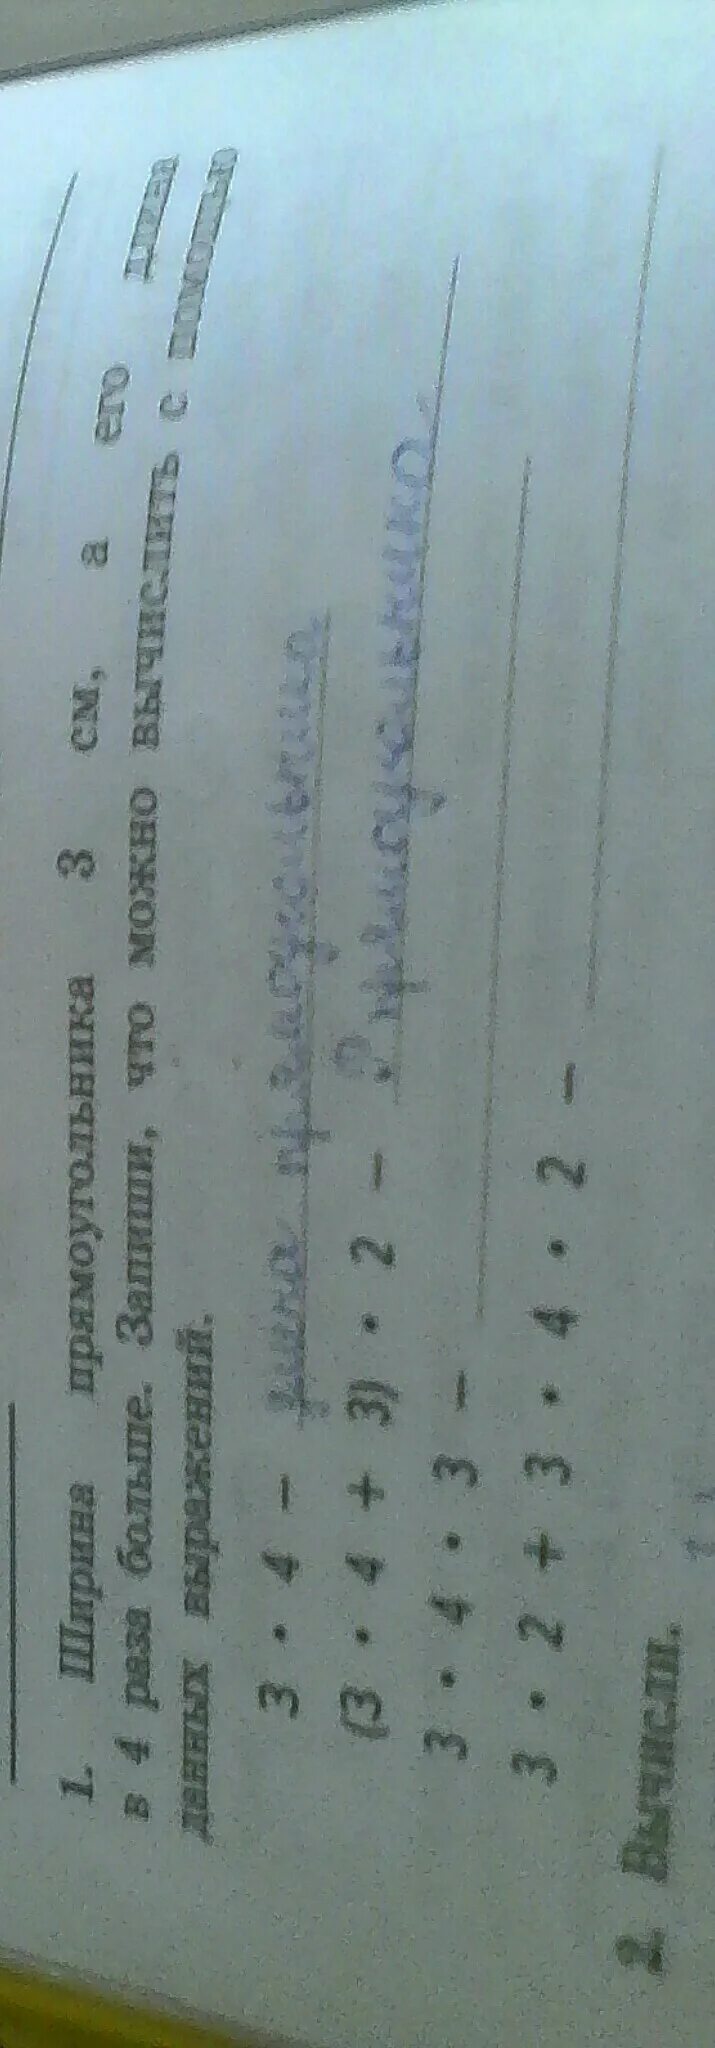 1. Ширина прямоугольника 3 см, а его длина
в 4 раза больше. Запиши, что можно вычислить с помощью
данных выражений.
3 · 4 – длина прямоугольника
(3 · 4 + 3) · 2 – P прямоугольника
3 · 4 · 3 –
3 · 2 + 3 · 4 · 2 –
2. Вычисли.